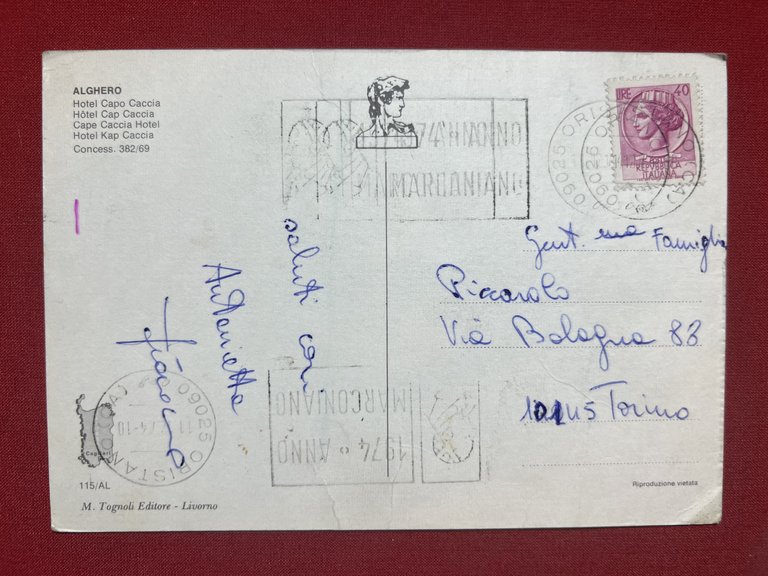 ALGHERO
Hotel Capo Caccia
Hôtel Cap Caccia
Cape Caccia Hotel
Hotel Kap Caccia
Concess. 382/69
LIRE 40
REPUBBLICA
ITALIANA
09025 ORI
MARCONIANO
saluti cari
Antonietta
Gent. ma Famiglia
Piccarolo
Via Bologna 83
Torino
09025 ORISTANO (CA)
74-10
1974 ANNO
MARCONIANO
Cagliari
115/AL
M. Tognoli Editore - Livorno
Riproduzione vietata